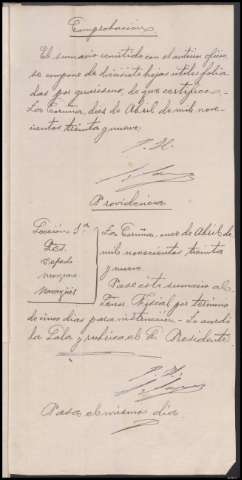 Comprobación
El sumario remitido con el anterior oficio
se compone de diecisiete hojas útiles folia
das por guarismo, de que certifico.-
La Coruña, diez de Abril de mil nove-
cientos treinta y nueve
P. H.
Providencia
Sección 1ª
Pte.
La Coruña, once de Abril de
mil novecientos treinta
y nueve
Pase esta sumario al
Señor Fiscal por término
de cinco días para instrucción. Lo acordó
la Sala y rubrica el Sr. Presidente
P. H.
Pasa el mismo día